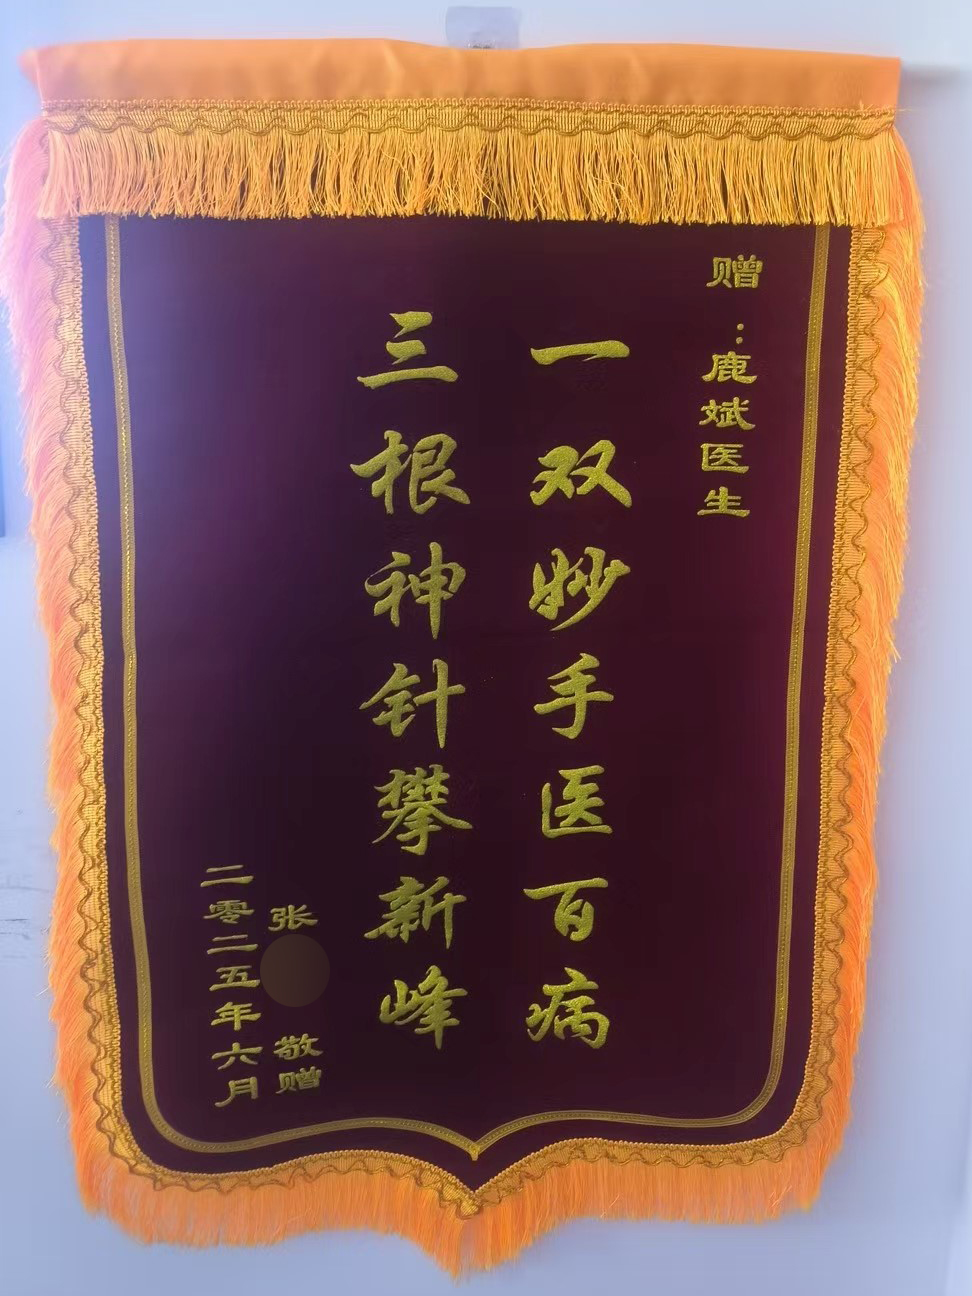 赠：鹿斌医生
一双妙手医百病
三根神针攀新峰
张 敬赠
二零二五年六月